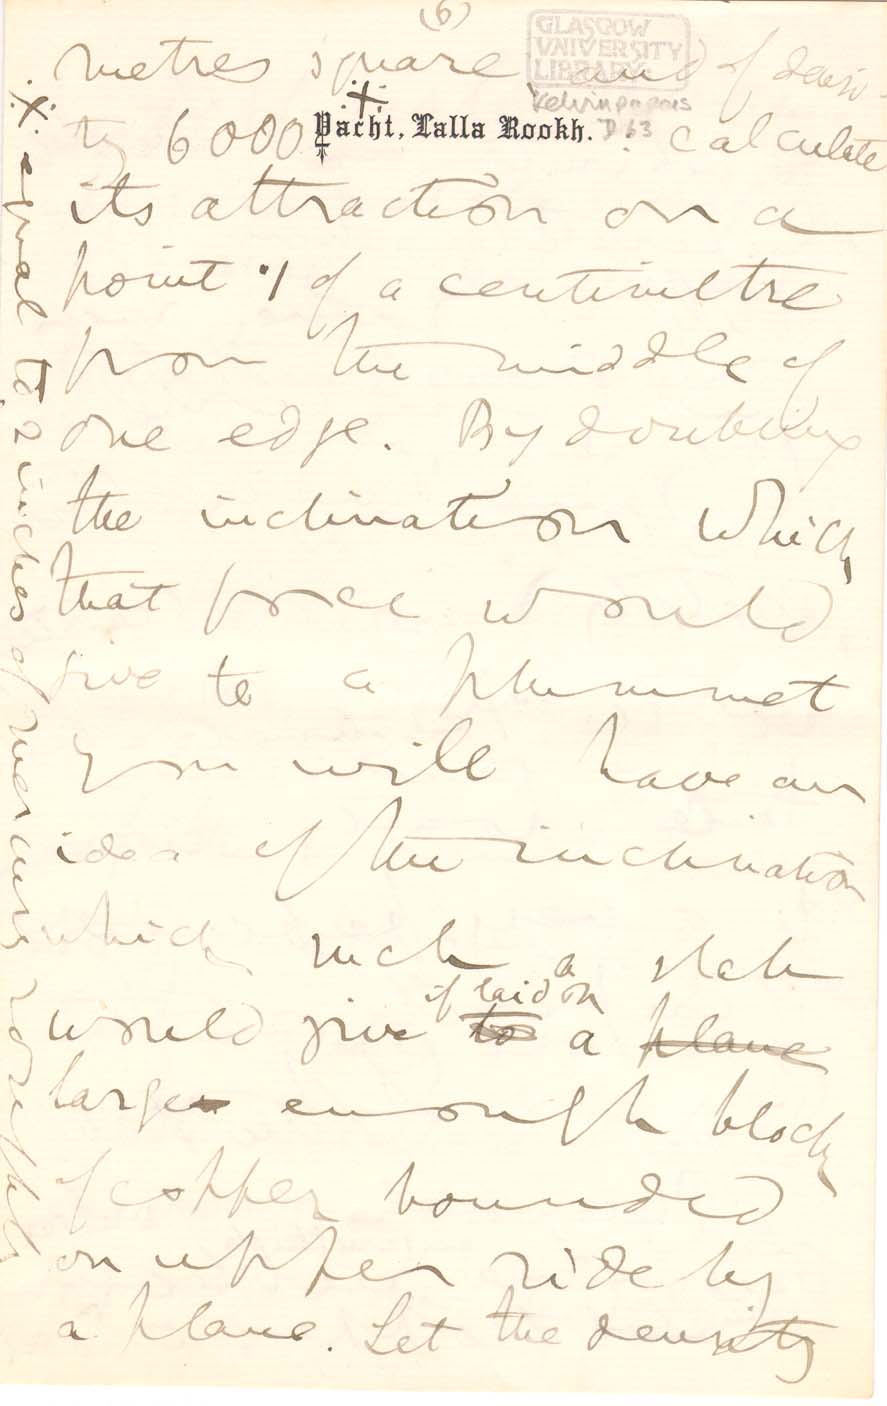 (6)
GLASGOW
UNIVERSITY
LIBRARY
Kelvin papers
D 63
Yacht, Lalla Rookh.
metres square and of densi-
ty 6000 X. calculate
its attraction on a
point ·1 of a centimetre
from the middle of
one edge. By doubling
the inclination which
that force would
give to a plummet
you will have an
idea of the inclination
which such a slab
would give to if laid on a plane
large enough block
of copper bounded
on upper side by
a plane. Let the density
X. equal to 2 inches of mercury roughly